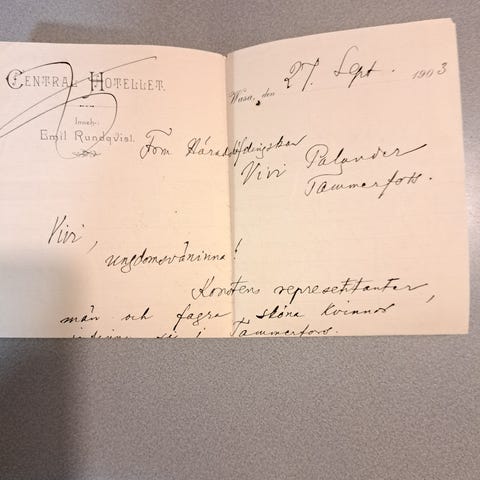 CENTRAL HOTELLET.
Inneh:
Emil Rundqvist.
Wasa, den 27. Sept. 1903
Fom Häradshöfdingskan
Vivi Palander
Tammerfors.
Vivi, ungdomsväninna!
Konstens representanter
män och fagra sköna kvinnor,
i Tammerfors.